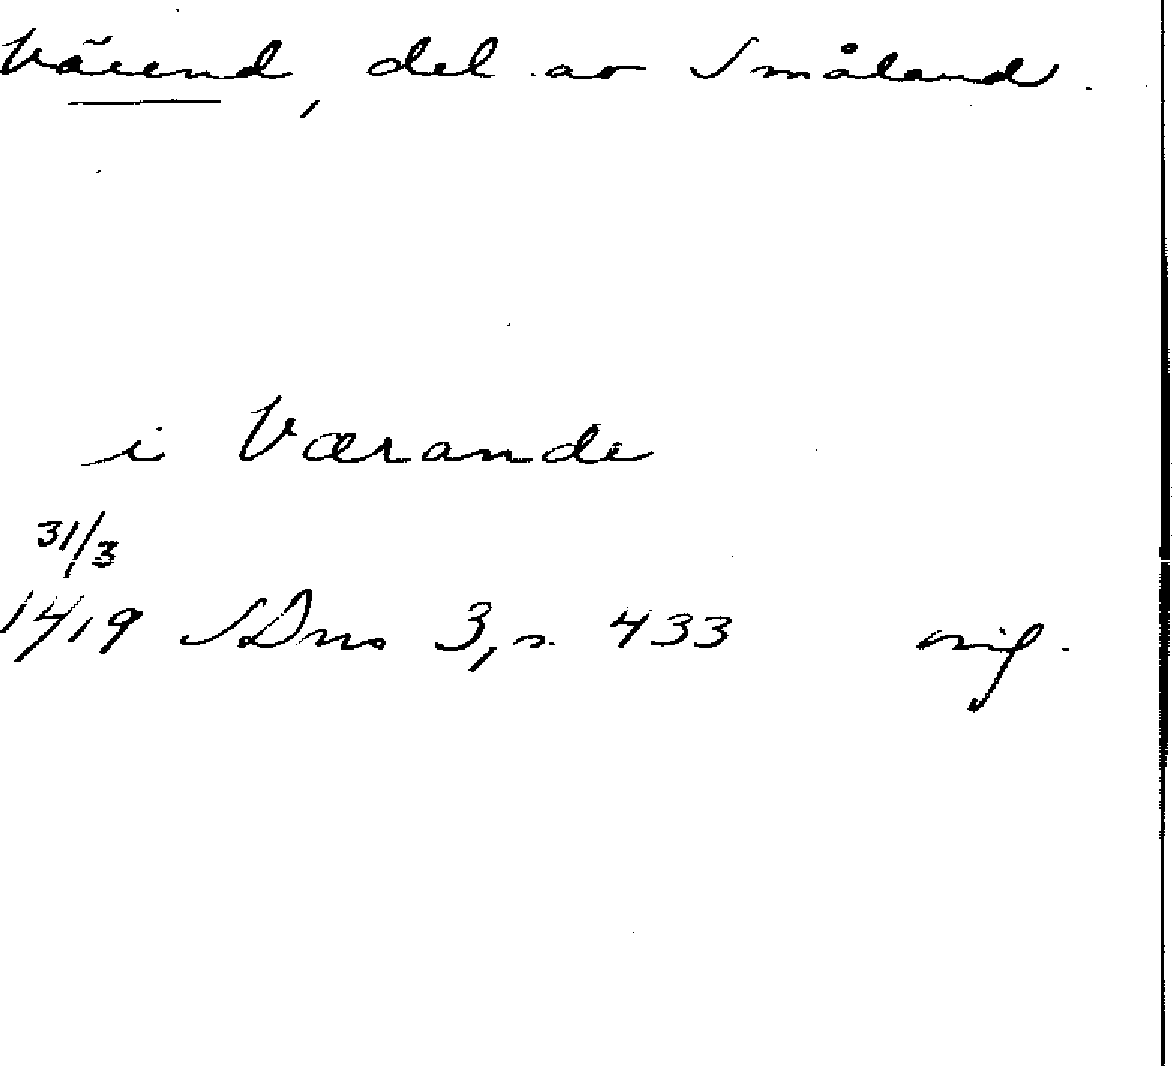 Värend, del av Småland.
iVærande
31/3
1419 SDns 3, s. 433 orig.